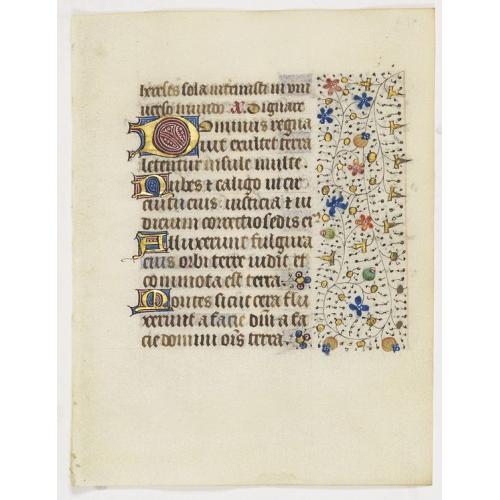 hereses sola interemisti in uni
uerso mundo. A. Dignare
Dominus regna
uit exultet terra
letentur insule multe.
Nubes et caligo in cir
cuitu eius iusticia et iu
dicium correctio sedis ei
Alluxerunt fulgura
eius orbi terre uidit et
commota est terra.
Montes sicut cera flu
xerunt a facie dñi a fa
cie domini oīs terra.